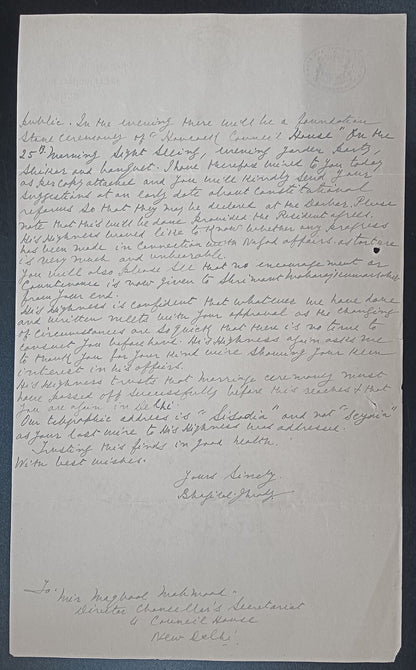 public. In the evening there will be a foundation
Stone ceremony of "Hancock Council House" On the
25th Morning sight seeing, evening garden party
Shikar and banquet. I have therefore wired to you today
as per copy attached and you will kindly send your
suggestions at an early date about Constitutional
reforms so that they may be declared at the Darbar. Please
note that this will be done provided the Resident agrees.
His Highness would like to know whether any progress
has been made in Connection with affairs. as torture
is very much and unbearable.
You will also please see that no encouragement or
Countenance is now given to Shrimant Maharaj
from your end.
His Highness is confident that whatever we have done
and written meets with your approval as the changing
of Circumstances are so quick that there is no time to
consult you beforehand. His Highness again asks me
to thank you for your kind wire showing your keen
interest in his affairs.
His Highness trusts that Marriage ceremony must
have passed off successfully before this reaches & that
you are again in Delhi.
Our telegraphic address is "Sisodia" and not
as your last wire to His Highness was addressed.
Trusting this finds in good health.
With best wishes.
Yours Sincly
To, Mir Maqbool Mahmood.
Director Chancellor's Secretariat
4 Council House
New Delhi